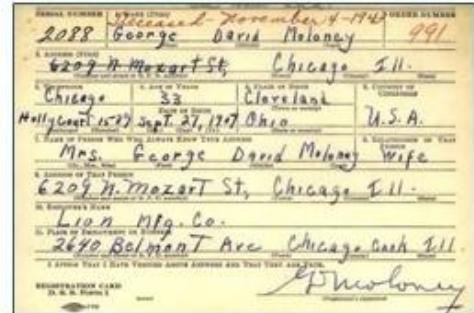 SERIAL NUMBER 1. NAME (Print) ORDER NUMBER
Deceased - November 4 -
2088 George David Moloney 991
2. ADDRESS (Print)
6209 N. Mozart St, Chicago Ill.
3. TELEPHONE 4. AGE IN YEARS 5. PLACE OF BIRTH 6. COUNTRY OF CITIZENSHIP
Chicago 33 Cleveland
DATE OF BIRTH
Hollycourt 1527 Sept. 27, 1907 Ohio U.S.A.
7. NAME OF PERSON WHO WILL ALWAYS KNOW YOUR ADDRESS 8. RELATIONSHIP OF THAT PERSON
Mrs. George David Moloney Wife
9. ADDRESS OF THAT PERSON
6209 N. Mozart St, Chicago Ill.
10. EMPLOYER'S NAME
Lion Mfg. Co.
11. PLACE OF EMPLOYMENT OR BUSINESS
2640 Belmont Ave Chicago Cook Ill.
I AFFIRM THAT I HAVE VERIFIED ABOVE ANSWERS AND THAT THEY ARE TRUE.
GDMoloney
REGISTRATION CARD
D. S. S. FORM 1